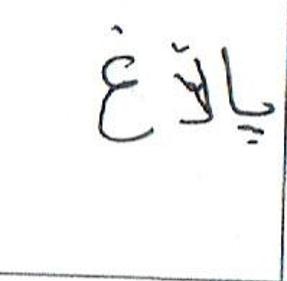 يالآغ